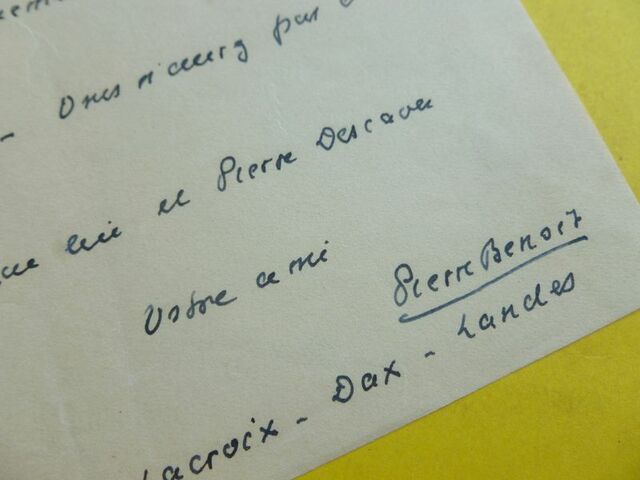 - Vous n'aurez pas
que lui et Pierre Descaves
Votre ami
Pierre Benoit
Lacroix - Dax - Landes